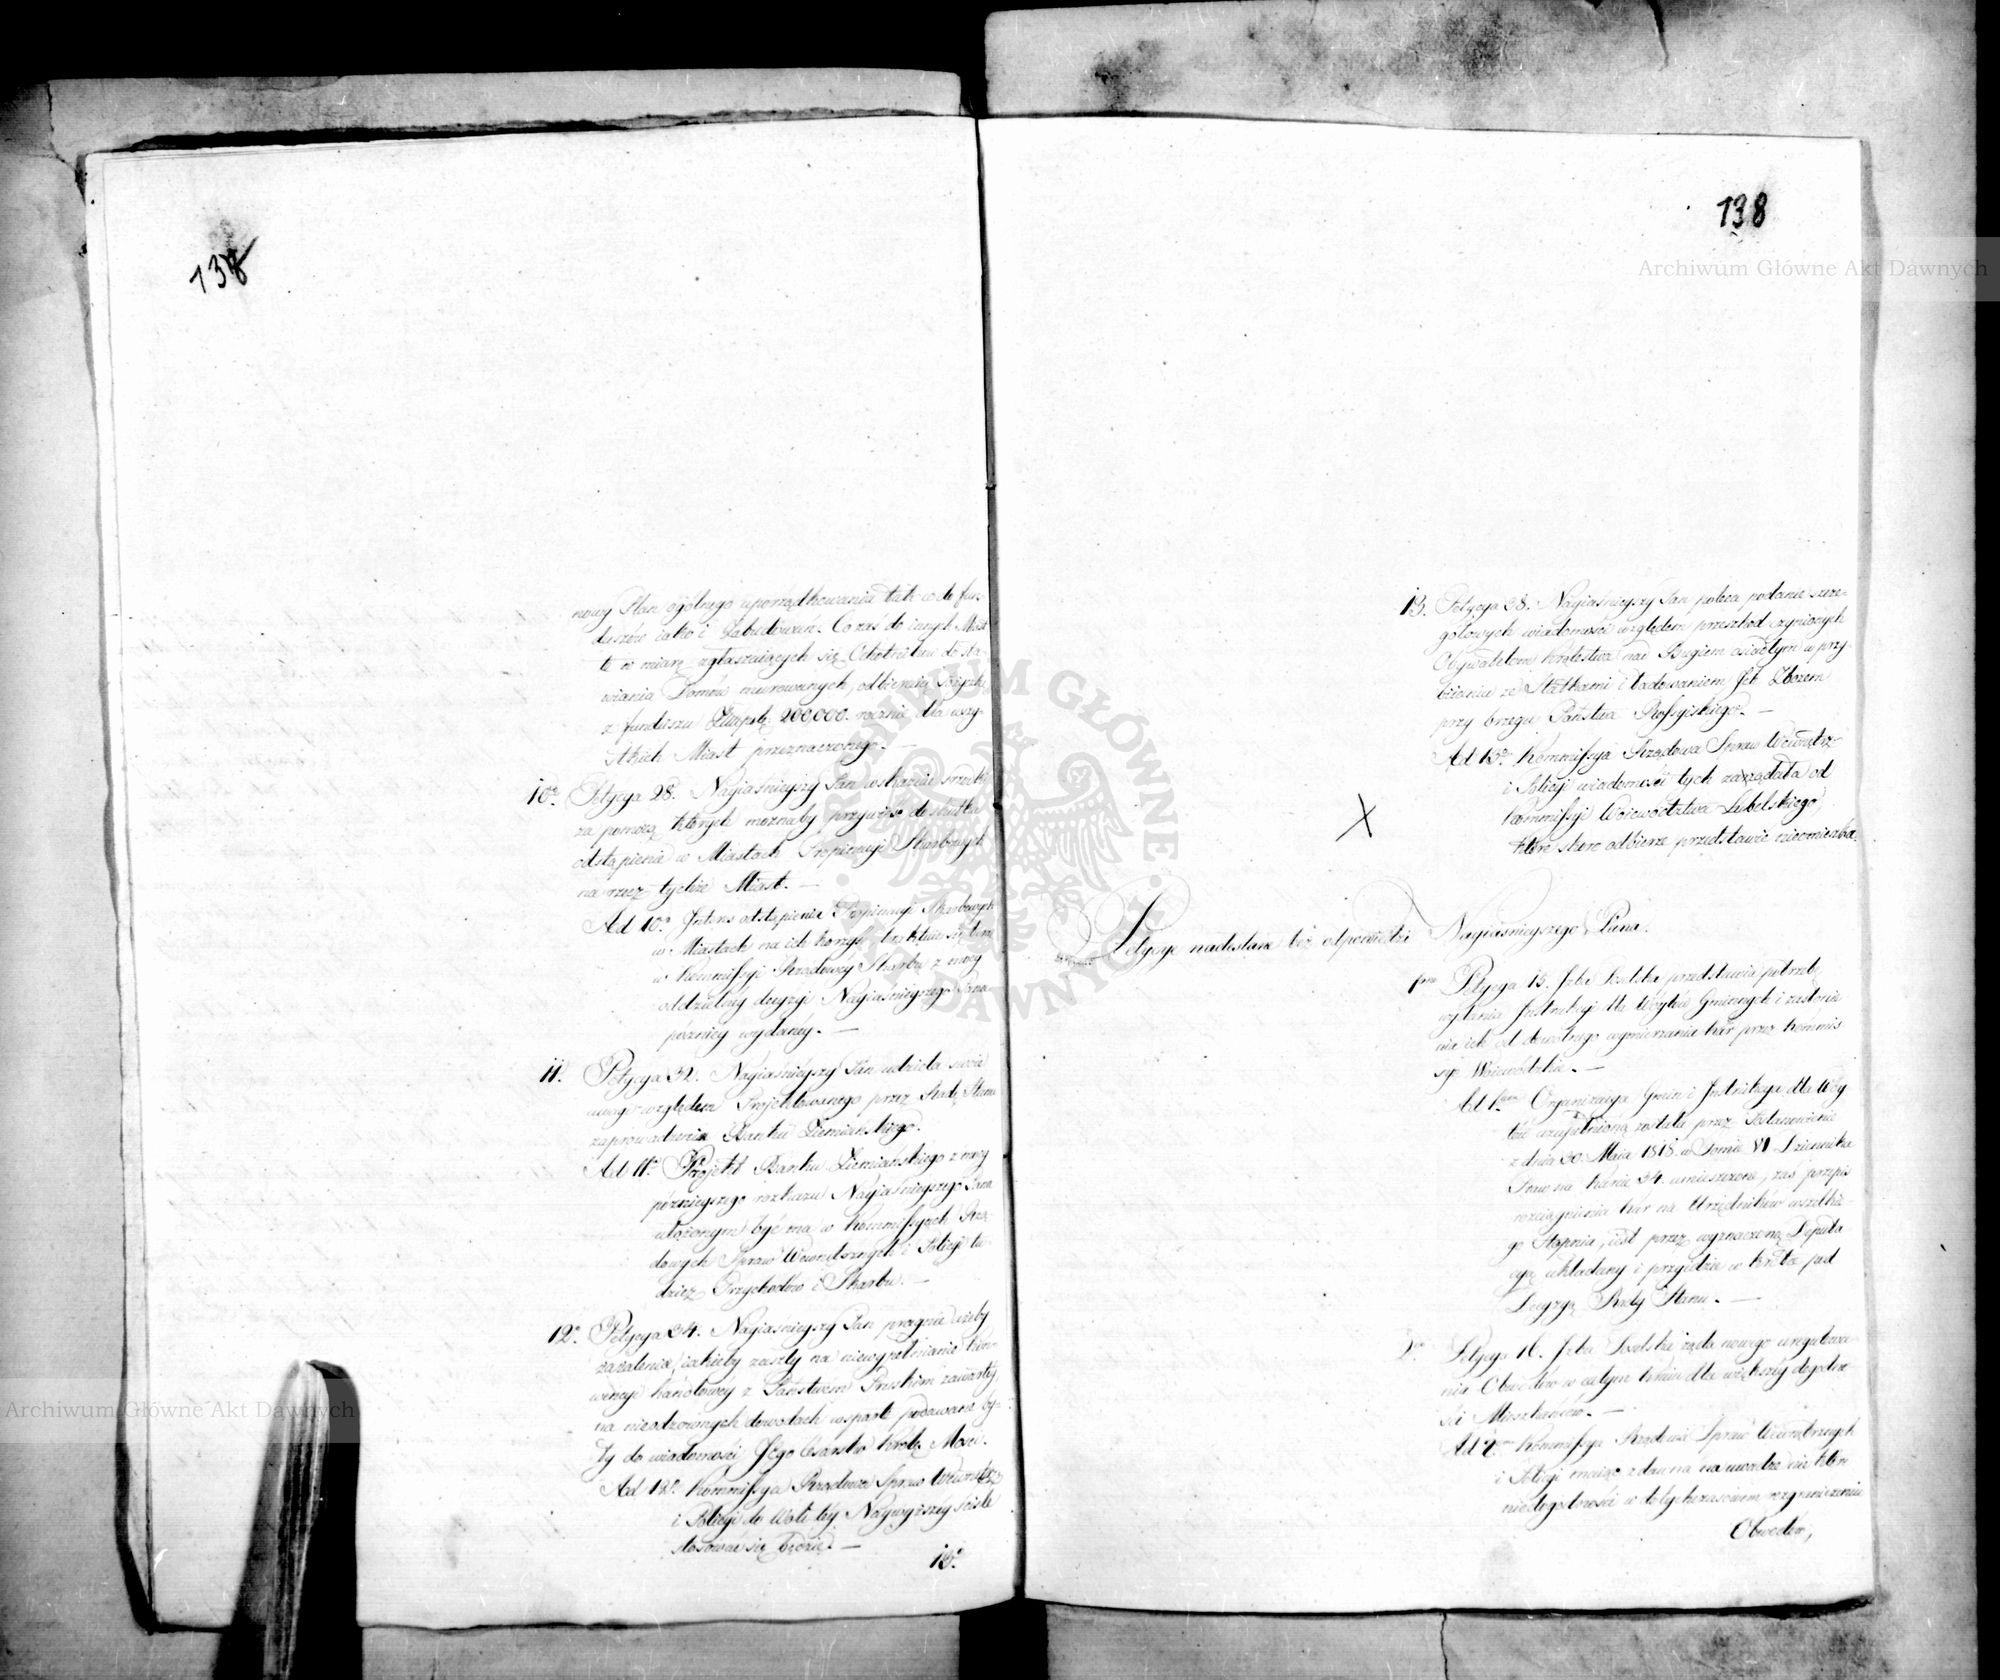 138
nowy Plan ogólnego uporządkowania tak co do fun-
duszów iako i Zabudowań. Co zaś do innych Miast
te w miarę zgłaszaiących się Ochotników do sta-
wiania Domów murowanych, odbieraią Pożyczki
z funduszu Złłpolˢ 200,000. rocznie dla wszy-
stkich Miast przeznaczonego. —
10º. Petycya 28. Nayiaśnieyszy Pan wskazuie środki
za pomocą których możnaby przywieść do skutku
odstąpienie w Miastach Propinacyi Skarbowych
na rzecz tychże Miast. —
Ad 10º. Jnteres odstąpienia Propinacyi Skarbowych
w Miastach na ich korzyść, traktuie się teraz
w Kommissyi Rządowey Skarbu z mocy
oddzielney decyzyi Nayiaśnieyszego Pana
pózniey wydaney. —
11. Petycya 32. Nayiaśnieyszy Pan udziela swoie
uwagi względem Projektowanego przez Radę Stanu
zaprowadzenia Banku Ziemiańskiego.
Ad 11º. Projekt Banku Ziemiańskiego z mocy
póznieyszego rozkazu Nayiaśnieyszego Pana
ułożonym być ma w Kommissyach Rzą-
dowych Spraw Wewnętrznych i Policyi tu-
dzież Przychodów i Skarbu. —
12º. Petycya 34. Nayiaśnieyszy Pan pragnie ażeby
zażalenia, iakieby zaszły na niewypełnianie Kon-
wencyi handlowey z Państwem Pruskim zawartey,
na niezdzownych dowodach wsparte podawane by-
ły do wiadomości Jego Cesarsko Królˢ Mości.
Ad 12º. Kommissya Rządowa Spraw Wewnętrz.
i Policyi do Woli tey Naywyższey ściśle
stosować się będzie. —
13º.
138
13. Petycya 38. Nayiaśnieyszy Pan poleca podanie szcze-
gółowych wiadomości względem przeszkod czynionych
Obywatelom Królestwa nad Bugiem osiadłym w przy-
bijaniu ze Statkami i ładowaniem Jch Zbożem
przy brzegu Państwa Rossyiskiego. —
Ad 13º Kommissya Rządowa Spraw Wewnętrz
i Policyi wiadomości tych zażądała od
Kommissyi Woiewództwa Lubelskiego,
które skoro odbierze przedstawić nieomieszka.
X
Petycye nadesłane bez odpowiedzi Nayiaśnieyszego Pana.
1mo Petycya 15. Jzba Poselska przedstawia potrzebę
wydania Jnstrukcyi dla Wóytów Gminnych i zasłonie-
nia ich od dowolnego wymierzania kar przez Kommis-
sye Woiewódzkie. —
Ad 1um Organizacya Gmin i Jnstrukcya dla Wóy-
tów uzupełnioną została przez Postanowienie
z dnia 30. Maja 1818. w Tomie VI Dziennika
Praw na karcie 34. umieszczone, zaś przepis
rozciągnienia kar na Urzędników wszelkie-
go Stopnia, iest przez wyznaczoną Deputa-
cyą układany i przyidzie w krótce pod
Decyzyą Rady Stanu. —
2do Petycya 16. Jzba Poselska żąda nowego uregulowa-
nia Obwodów w całym kraiu dla większey dogodno-
ści Mieszkańców. —
Ad 2um Kommissya Rządowa Spraw Wewnętrznych
i Policyi maiąc zdawna na uwadze nie które
niedogodności w dotychczasowem rozgraniczeniu
Obwodów,
Archiwum Główne Akt Dawnych
Archiwum Główne Akt Dawnych
ARCHIWUM GŁÓWNE AKT DAWNYCH